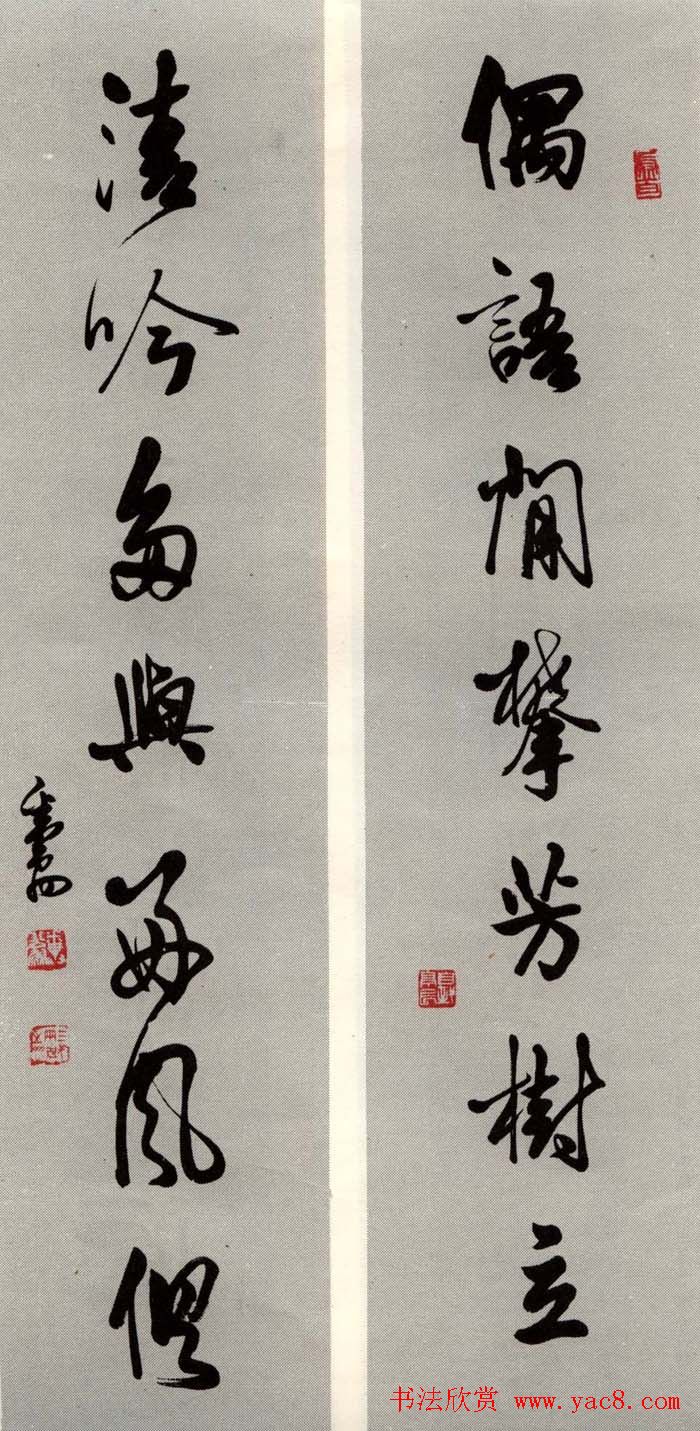 偶語閒攀芳樹立
清吟每與好風俱
书法欣赏 www.yac8.com